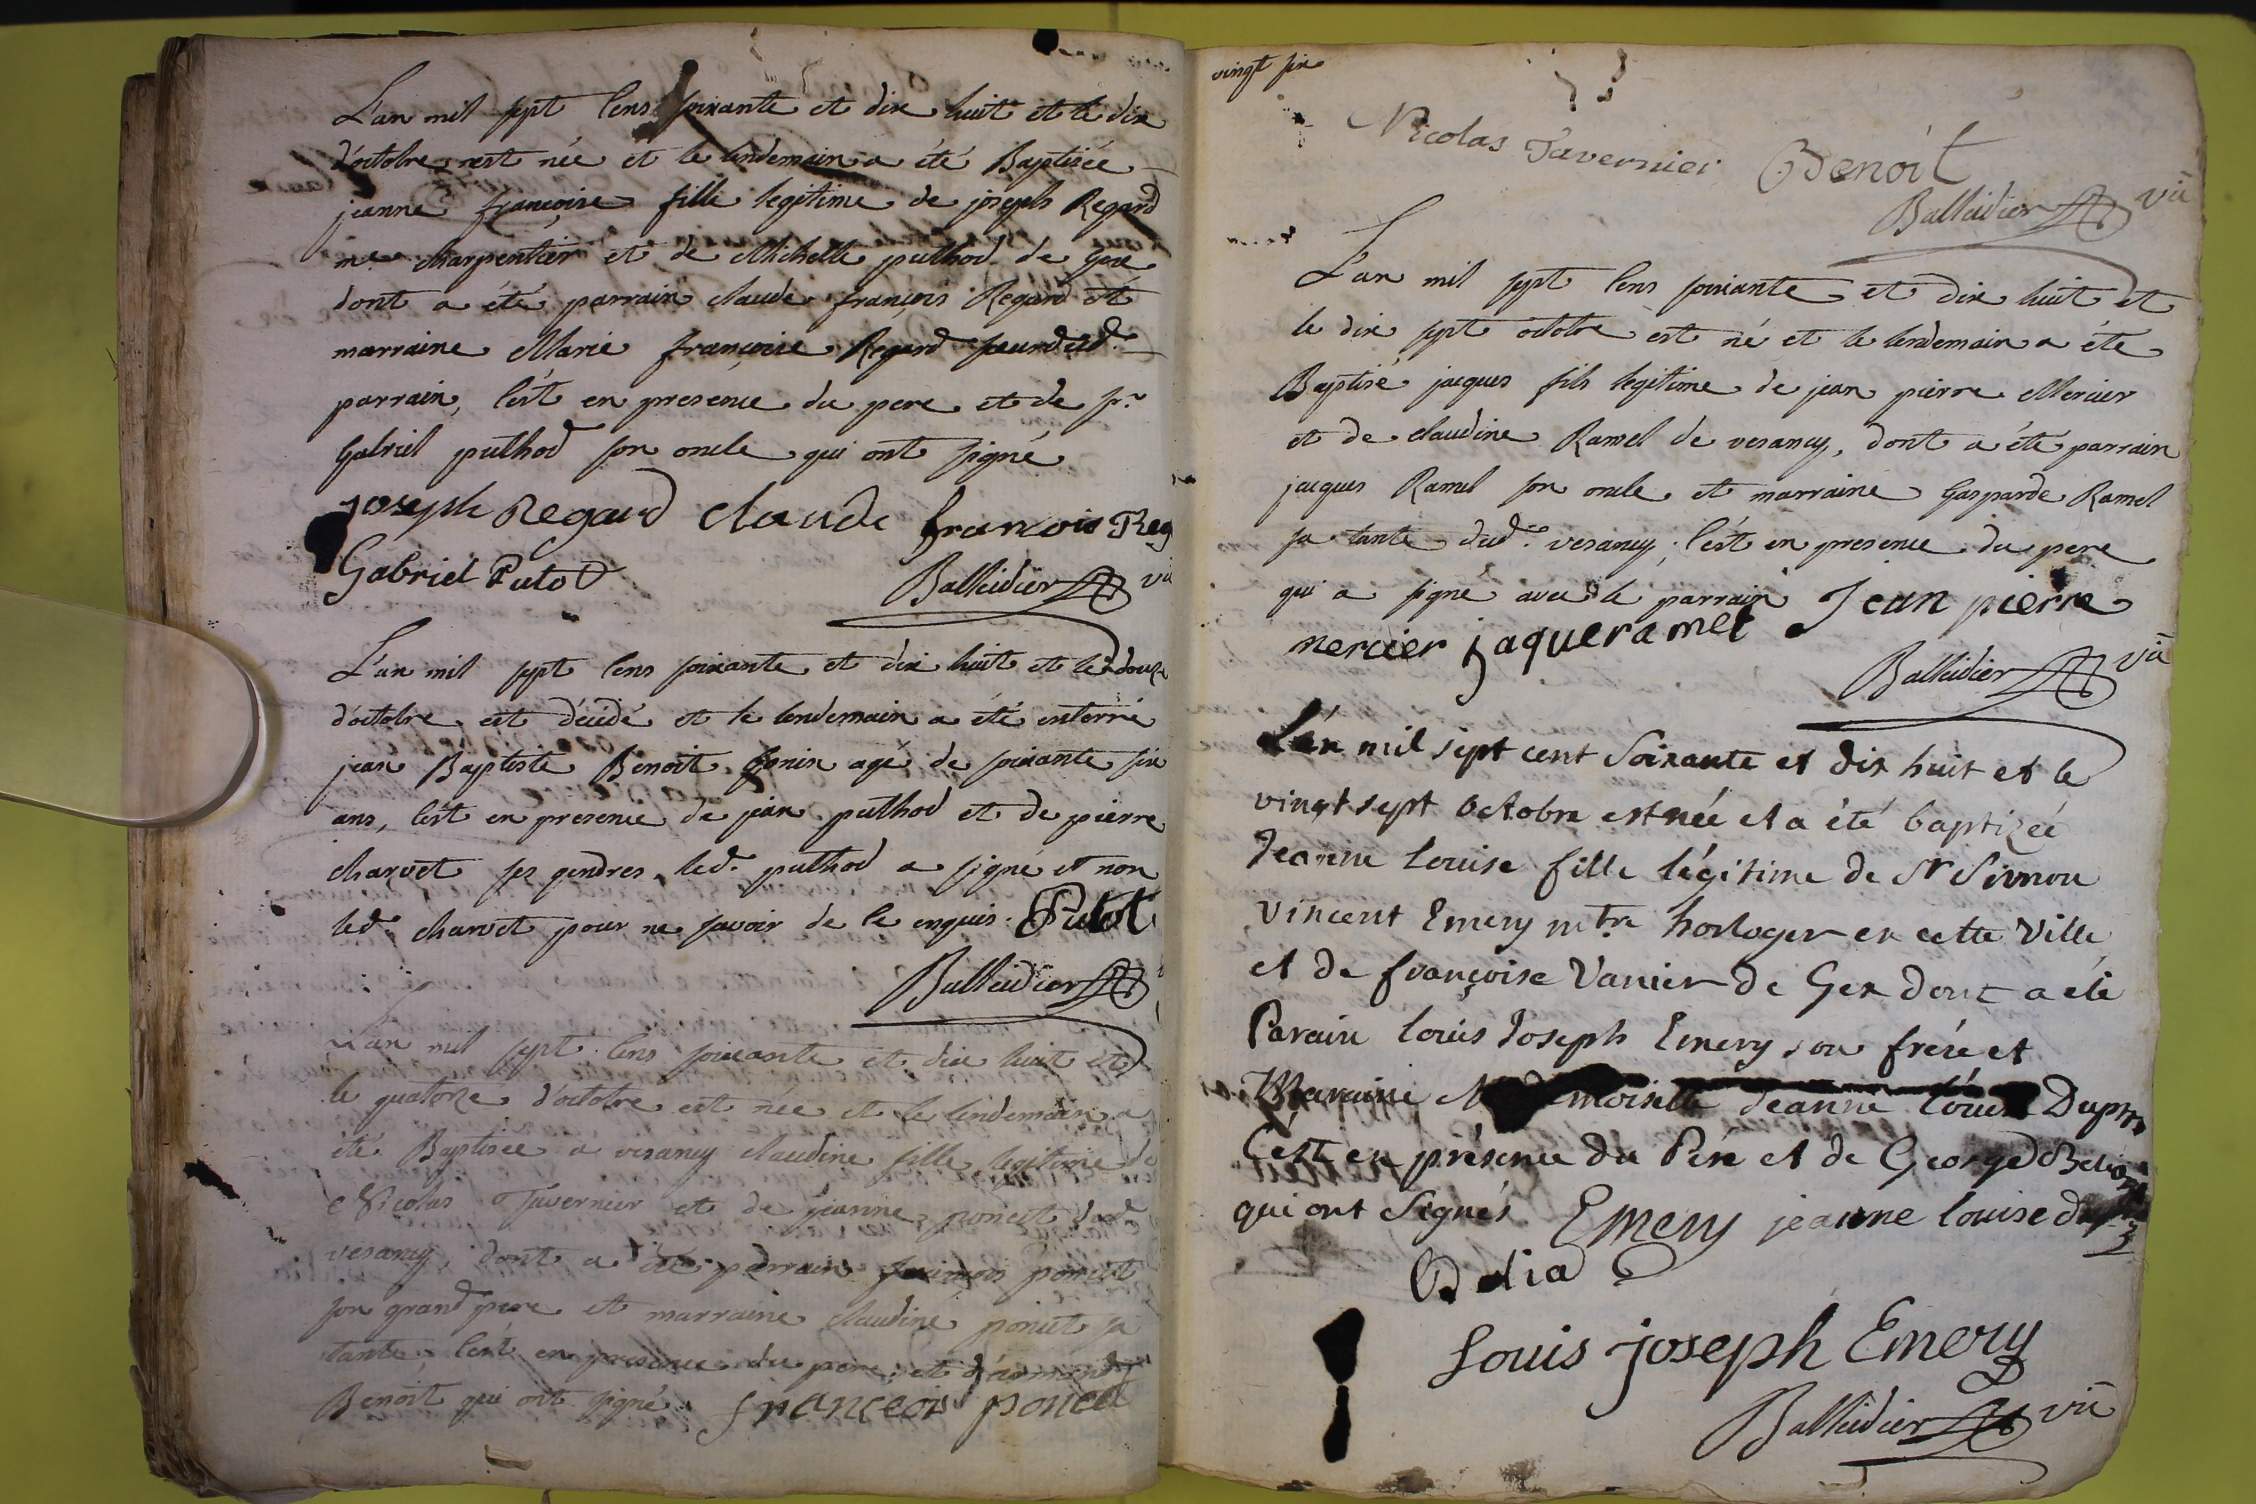 L'an mil sept cens soixante et dix huit et le dix
d'octobre est née et le lendemain a été Baptisée
jeanne françoise fille legitime de joseph Regard
me charpentier et de Michelle puthod de Gex
dont a été parrain claude françois Regard et
marraine Marie françoise Regard soeur dud.
parrain, c'est en presence du pere et de sr
Gabriel puthod son oncle qui ont signé
joseph Regard claude francois Reg
Gabriel Putod Balleidier vic
L'an mil sept cens soixante et dix huit et le douze
d'octobre est décédé et le lendemain a été enterré
jean Baptiste Benoit agé de soixante six
ans, c'est en presence de jean puthod et de pierre
charvet ses gendres, led. puthod a signé et non
led. charvet pour ne savoir de ce enquis. Putot
Balleidier
L'an mil sept cens soixante et dix huit et
le quatorze d'octobre est née et le lendemain a
été Baptisée a vesancy claudine fille legitime de
Nicolas Tavernier et de jeanne poncet dud.
vesancy, dont a été parrain françois poncet
son grand pere et marraine claudine poncet sa
tante, c'est en presence du pere et
Benoit qui ont signé. franceois poncet
vingt six
Nicolas Tavernier Benoit
Balleidier vic
L'an mil sept cens soixante et dix huit et
le dix sept octobre est né et le lendemain a été
Baptisé jacques fils legitime de jean pierre Mercier
et de claudine Ramel de vesancy, dont a été parrain
jacques Ramel son oncle et marraine Gasparde Ramel
sa tante dud. vesancy; c'est en presence du pere
qui a signé avec le parrain Jean pierre
mercier jaqueramel
Balleidier vic
L'an mil sept cent soixante et dix huit et le
vingt sept octobre est née et a été baptizée
Jeanne Louise fille légitime de Sr Simon
Vincent Emery mtre horloger en cette Ville
et de françoise Vanier de Gex dont a été
Parain Louis Joseph Emery son frére et
Maraine Mademoiselle Jeanne Louise Dupra
C'est en présence du Pére et de George
qui ont Signés Emery jeanne louise
Odia
Louis joseph Emery
Balleidier vic